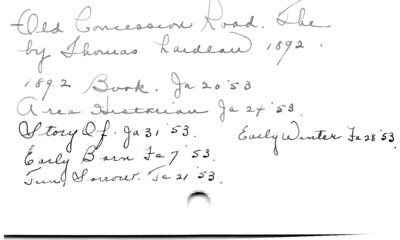 Old Concession Road. The
by Thomas Laidlaw 1892.
1892 Book. Ja 20 '53
Area Historian Ja 24 '53.
Story Of. Ja 31 '53. Early Winter Fe 28 '53
Early Barn Fe 7 '53.
Fun, Sorrow. Fe 21 '53.